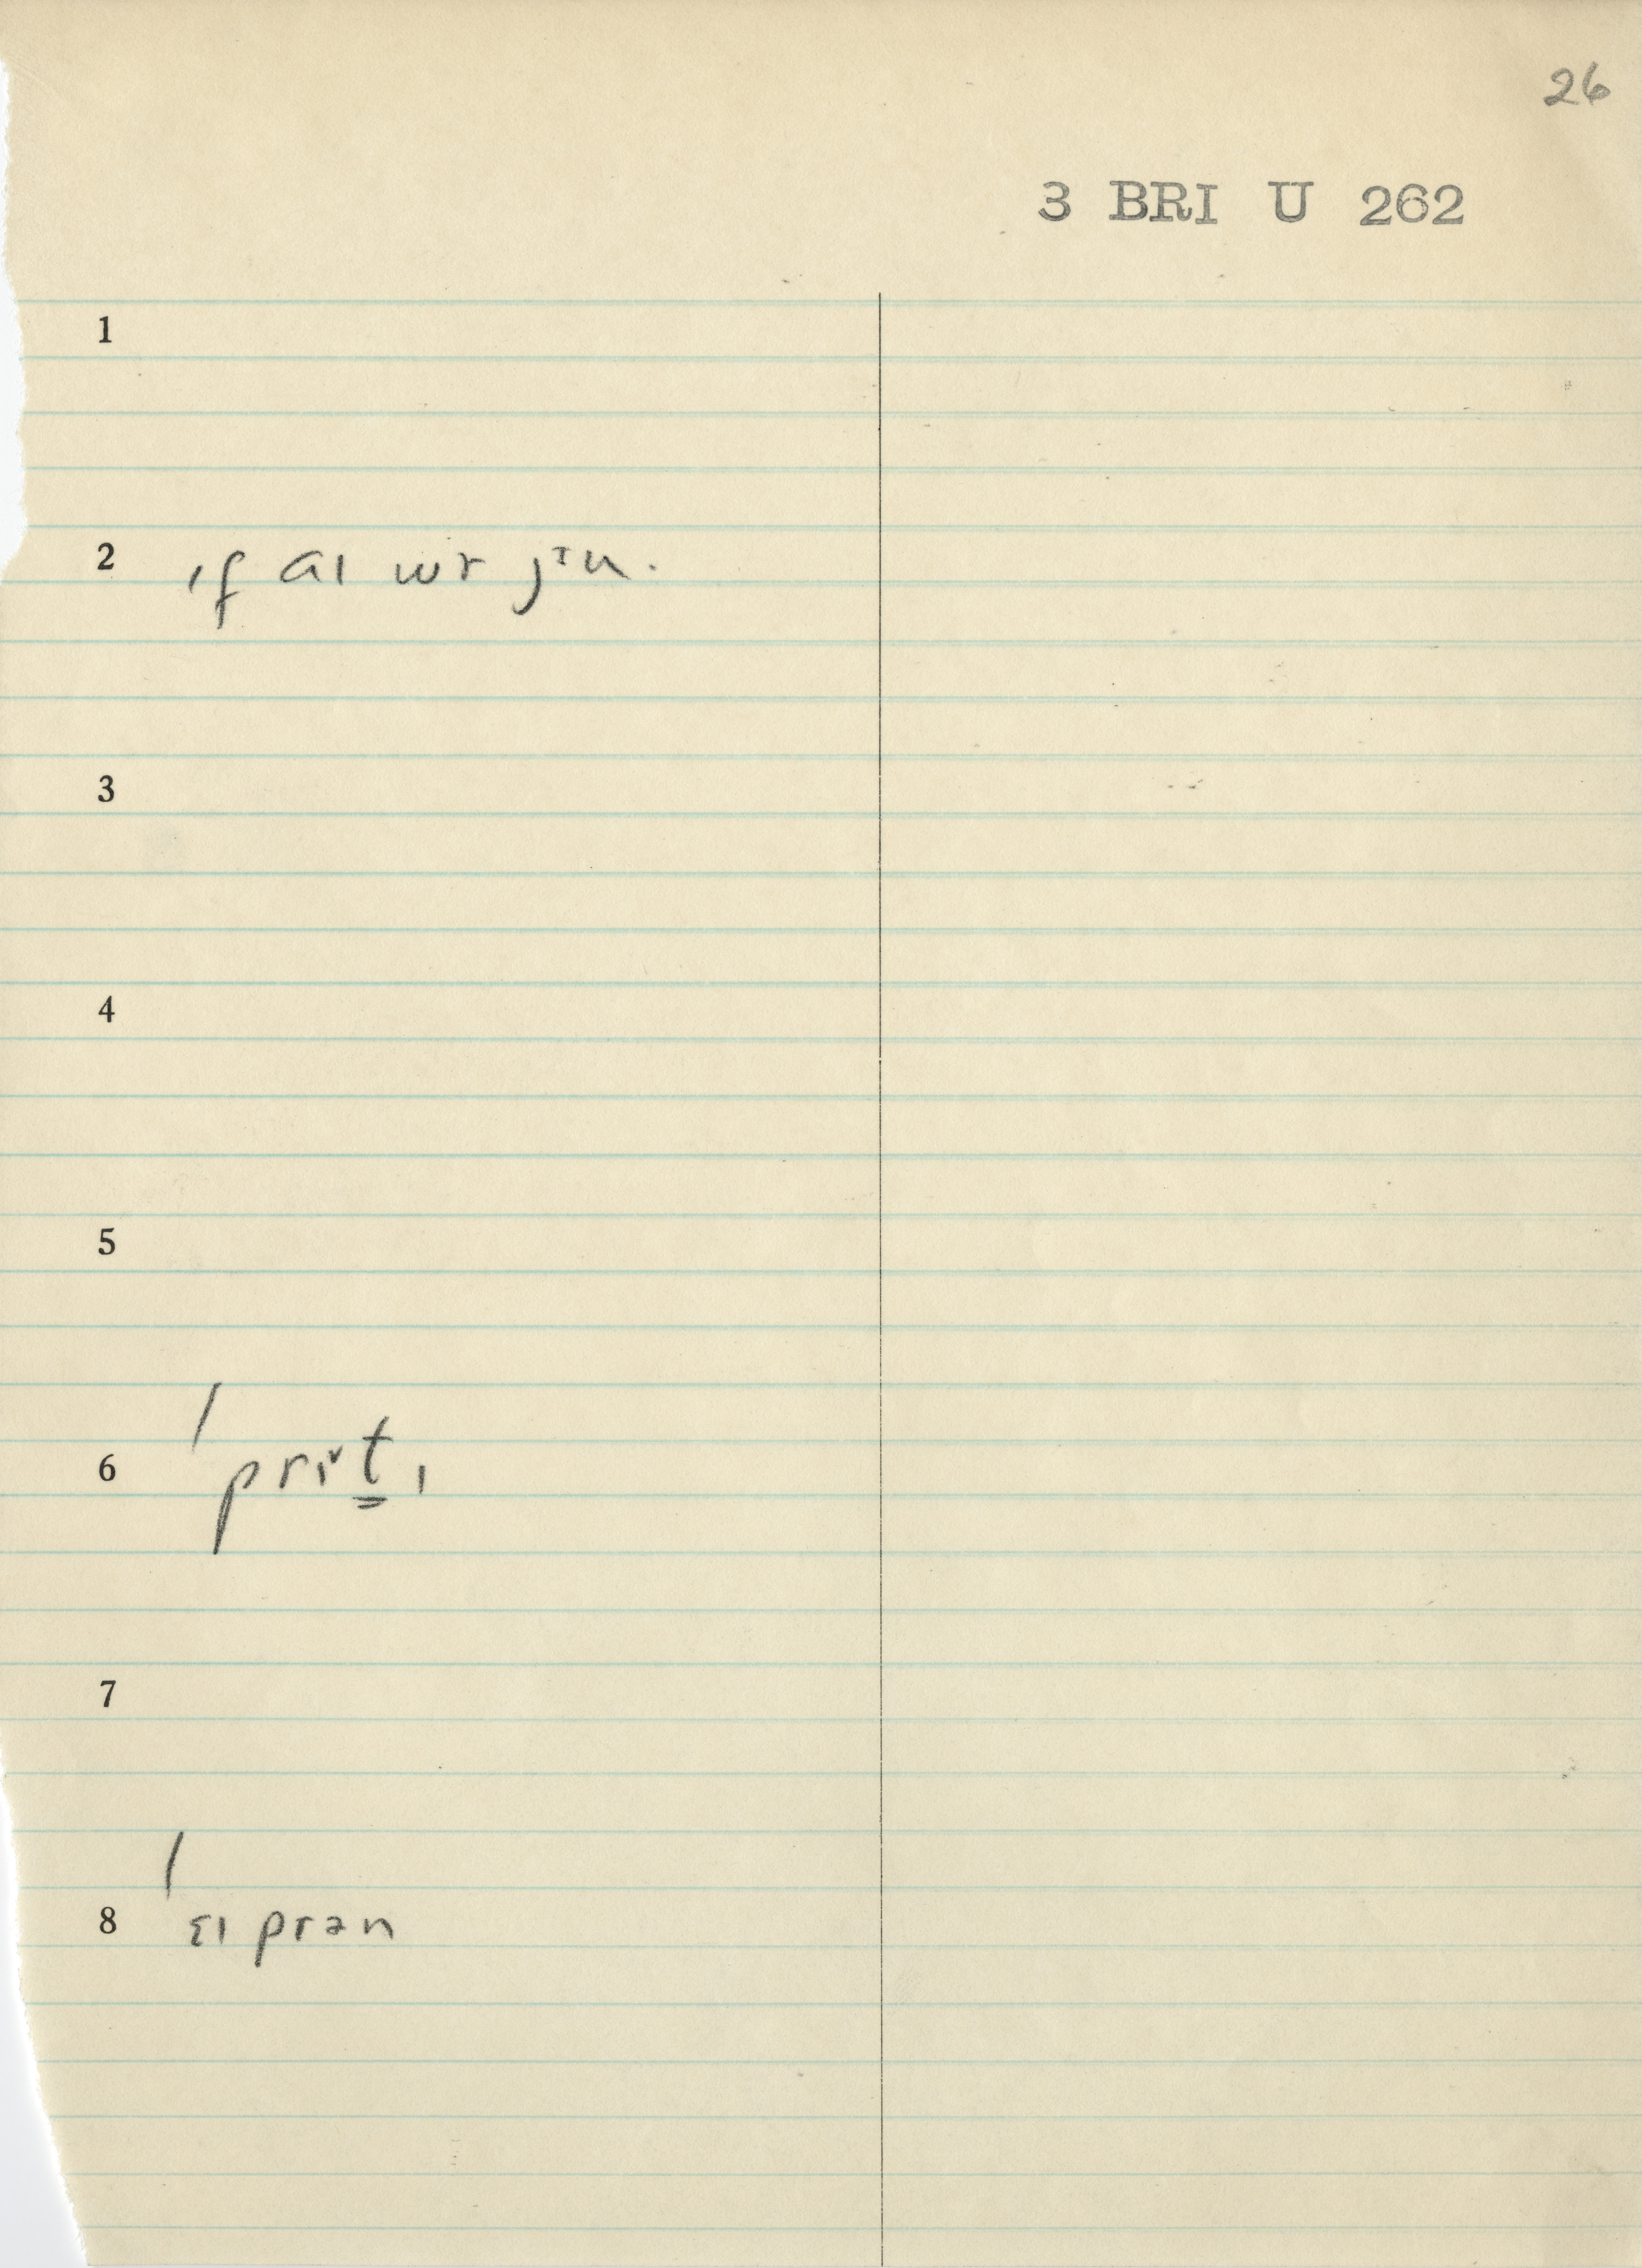 26
3 BRI U 262
1
2 ɪf aɪ wɚ jᶤu.
3
4
5
6 prɪᵛt̳ɪ
7
8 ɛɪ prən